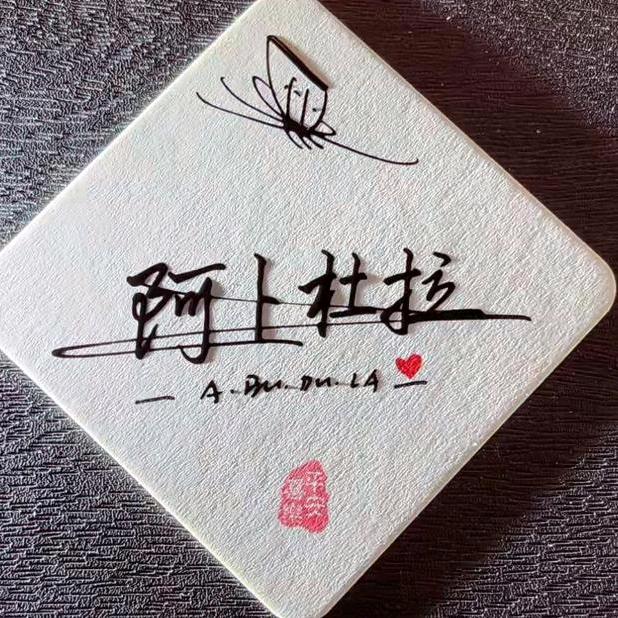 阿卜杜拉
A.BU.DU.LA